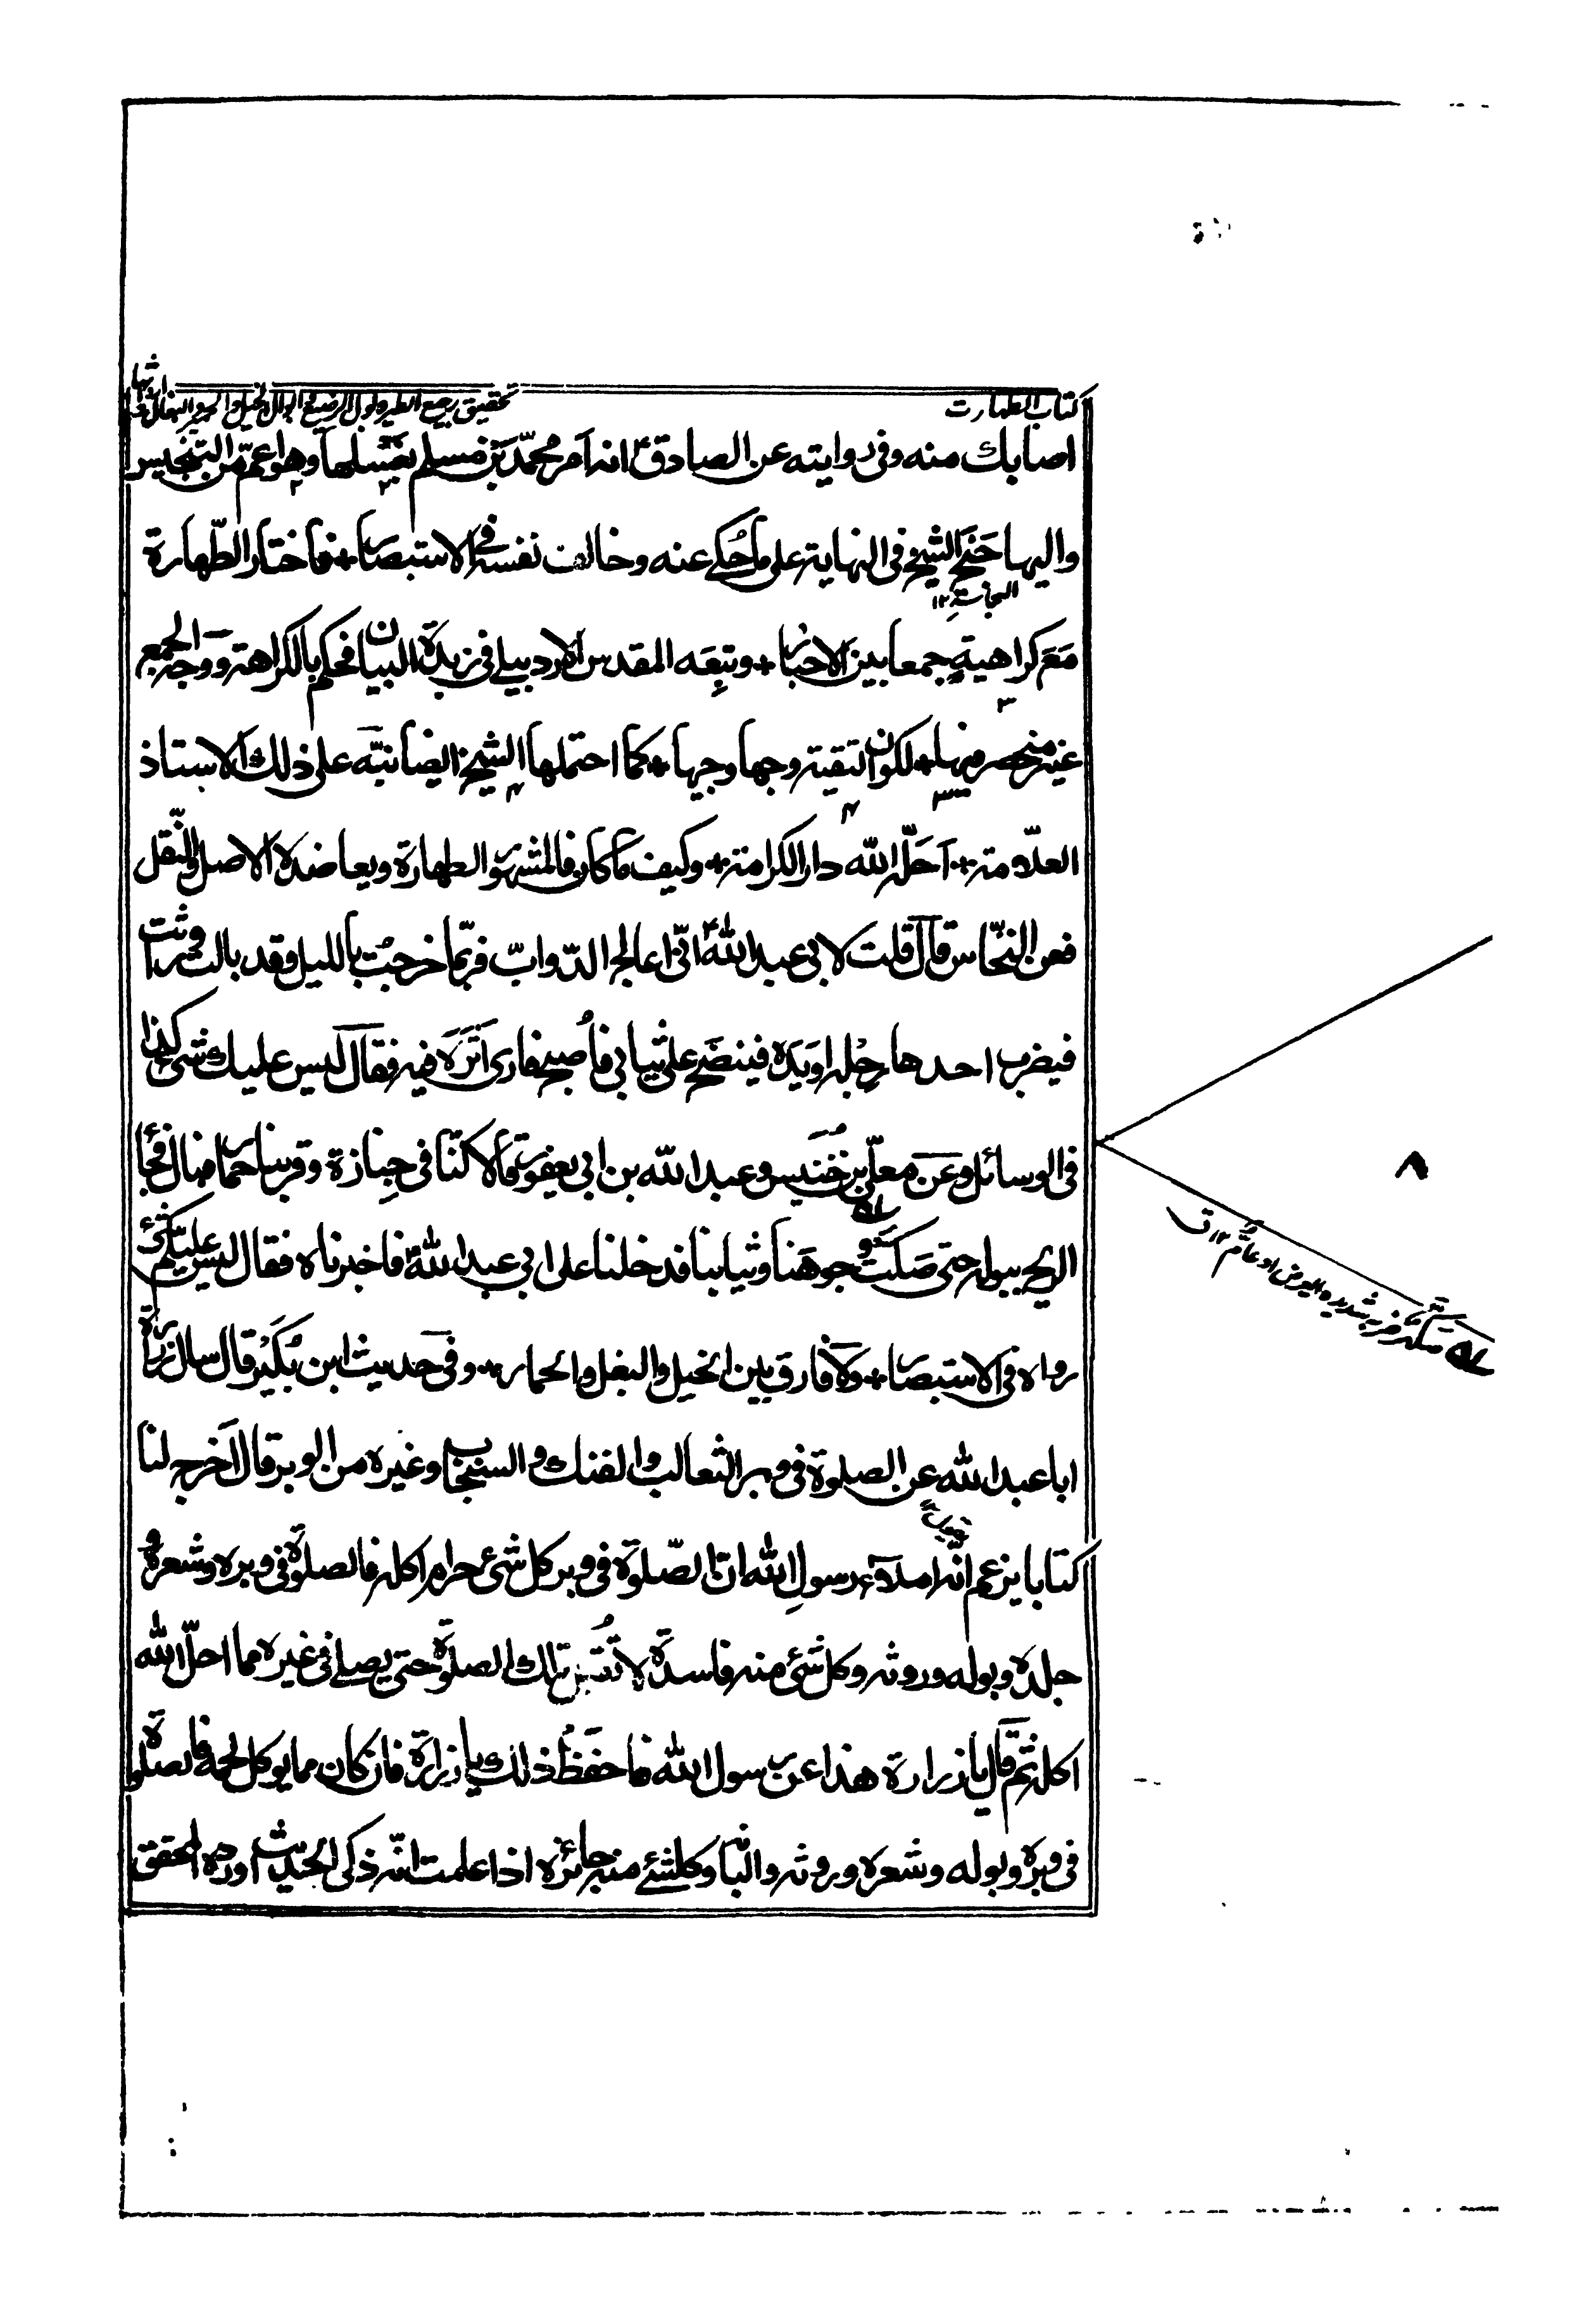 كتاب الطهارت
تحقيق رجيع الطير وبول الرضيع وابوال الخيل والحمير والبغال وارواثها
اصابك منه وفى روايته عن الصادقؑ انه اَمر محمّد بَن مسلم بغَسلها وهو اعمّ من التنجيس
واليها جَنَح الشيخ فى النهاية على ما حُكے عنه وخالف نفسه فى الاستبصار فاختار الطّهارة
النجاسة ١٢
مَعَ كراهيةٍ جمعا بين الاخبار وتبِعَه المقدس الاردبيلے فى زبدة البيان فحكم بالكراهة ووجه الجمع
غير منحصر فيها لكون التقية وجها وجيها كما احتملها الشيخ ايضا نبّه على ذلك الاستاذ
العلّامة اَحلّه الله دار الكرامة وكيف ما كان فالمشهور الطهارة ويعاضده الاصل والنّقل
فعن النحّاس قال قلت لابى عبد اللهؑ انّى اعالج الدّوابّ فربّما خرجت بالليل وقد بالت وراثت
فيضرب احدها رجله او يَده فينضَح على ثيابى فاُصبح فارى اَثَرَه فيه فقال ليس عليك شئ كذا
فى الوسائل وعَن معلّى بن خُنَيس وعبد الله بن ابى يعفور قالا كنّا فى جِنازة وقربنا حمار فبال فجاءت
الريح ببوله حتى صَكّت وجوهَنا وثيابنا فدخلنا على ابى عبد اللهؑ فاخبرناه فقال ليس عليكم شئ
رواه فى الاستبصار ولا فارق بين الخيل والبغل والحمار وفى حديث ابن بُكَيْر قال سال زرارة
ابا عبد الله عن الصلوة فى وبر الثعالب والفنك والسنجاب وغيره من الوبر قال اَخرج لنا
كتابا يزعم انّه املاء رسولِ الله انّ الصّلوة فى وبر كل شئ حرام اكله فالصلوة فى وبره وشعره و
جلده وبوله وروثه وكل شئ منه فاسدة لا تُقبل تلك الصلوة حتى يصلے فى غيره مما احلّ الله
اكله ثم قال يا زرارة هذا عن رسول الله فاحفَظ ذلك يا زرارة فان كان مما يوكل لحمه فالصلوة
فى وبره وبوله وشعره وروثه والبانه وكلشئ منه جائزه اذا علمت انّه ذكى الحديث اورده المحقق
صكّه ضربه شديدا بعريض او عامّ ١٢ ق
٨